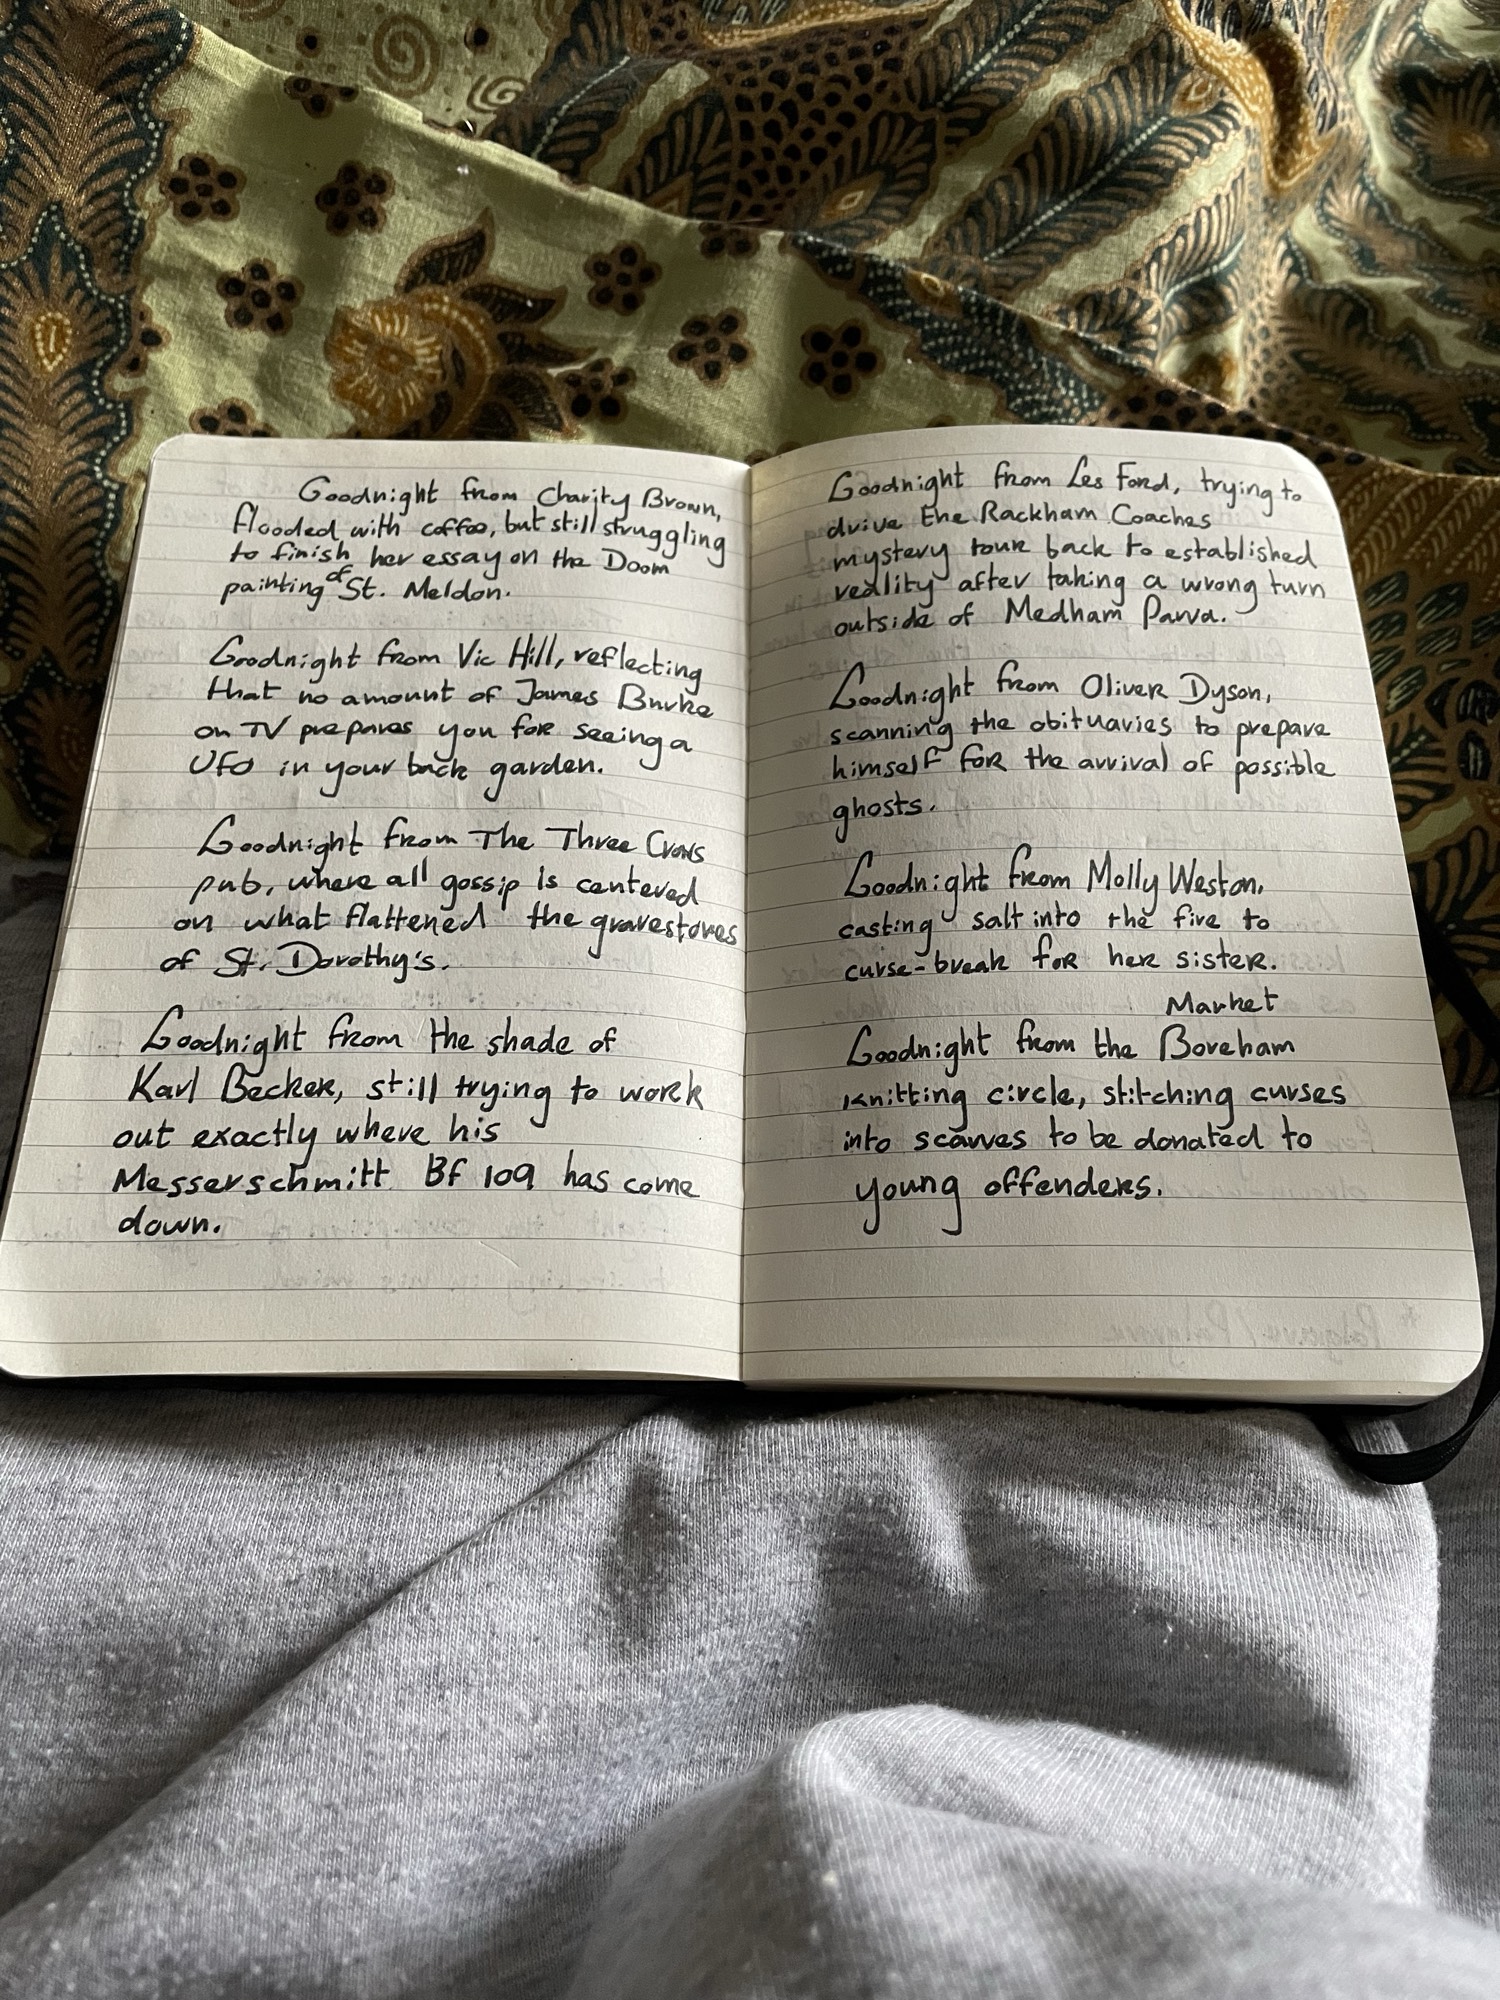 Goodnight from Charity Brown,
flooded with coffee, but still struggling
to finish her essay on the Doom
painting of St. Meldon.
Goodnight from Vic Hill, reflecting
that no amount of James Burke
on TV prepares you for seeing a
UFO in your back garden.
Goodnight from The Three Crows
pub, where all gossip is centered
on what flattened the gravestones
of St. Dorothy's.
Goodnight from the shade of
Karl Becker, still trying to work
out exactly where his
Messerschmitt Bf 109 has come
down.
Goodnight from Les Ford, trying to
drive the Rackham Coaches
mystery tour back to established
reality after taking a wrong turn
outside of Medham Parva.
Goodnight from Oliver Dyson,
scanning the obituaries to prepare
himself for the arrival of possible
ghosts.
Goodnight from Molly Weston,
casting salt into the fire to
curse-break for her sister.
Market
Goodnight from the Boreham
knitting circle, stitching curses
into scarves to be donated to
young offenders.